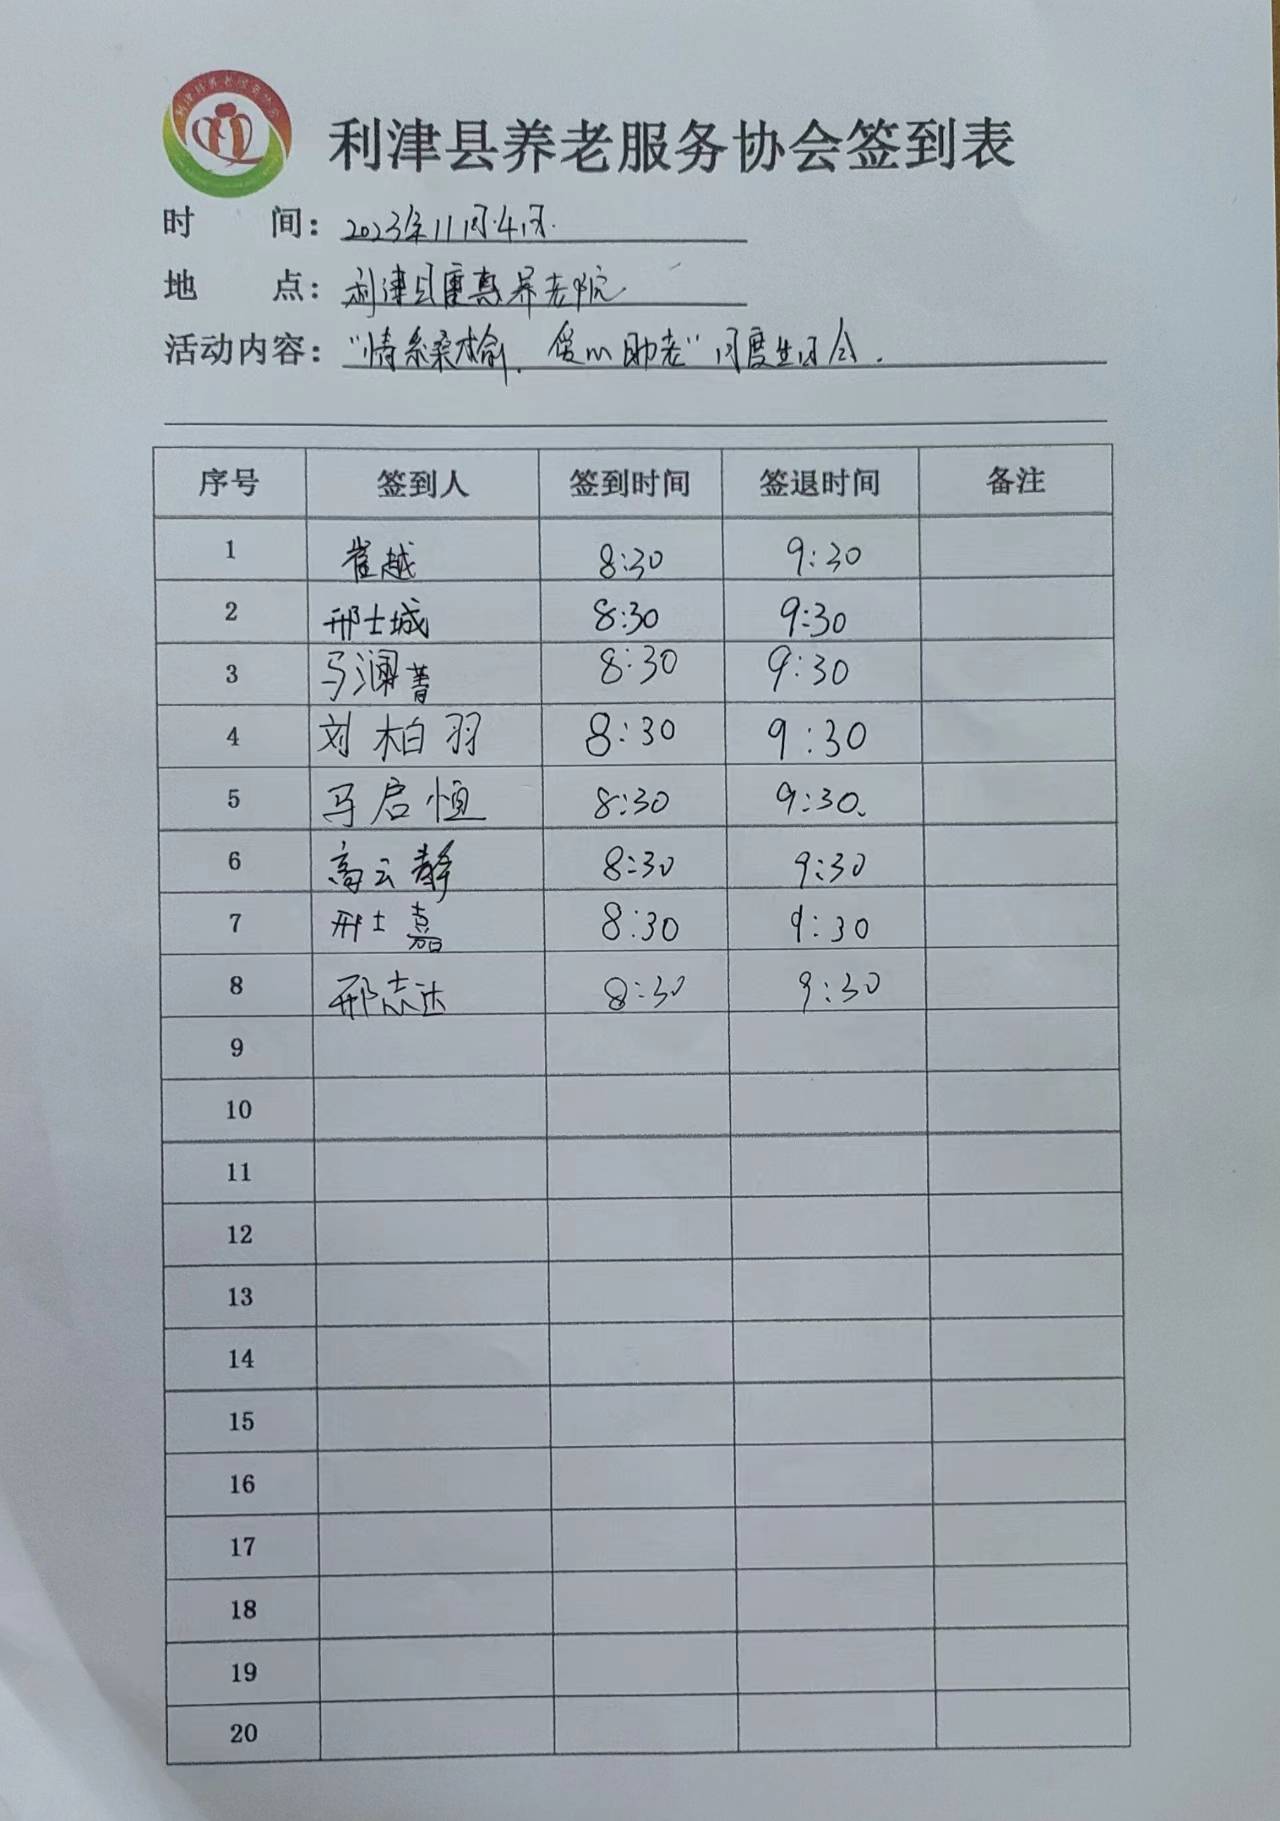 利津县养老服务协会
利津县养老服务协会签到表
时 间：2023年11月4日.
地 点：利津县惠养老院
活动内容："情系桑榆，爱心助老"月度生日会.
序号 签到人 签到时间 签退时间 备注
1 崔越 8:30 9:30
2 邢士城 8:30 9:30
3 马澜菁 8:30 9:30
4 刘柏羽 8:30 9:30
5 马启恒 8:30 9:30.
6 高云静 8:30 9:30
7 邢士嘉 8:30 9:30
8 邢志达 8:30 9:30
9
10
11
12
13
14
15
16
17
18
19
20